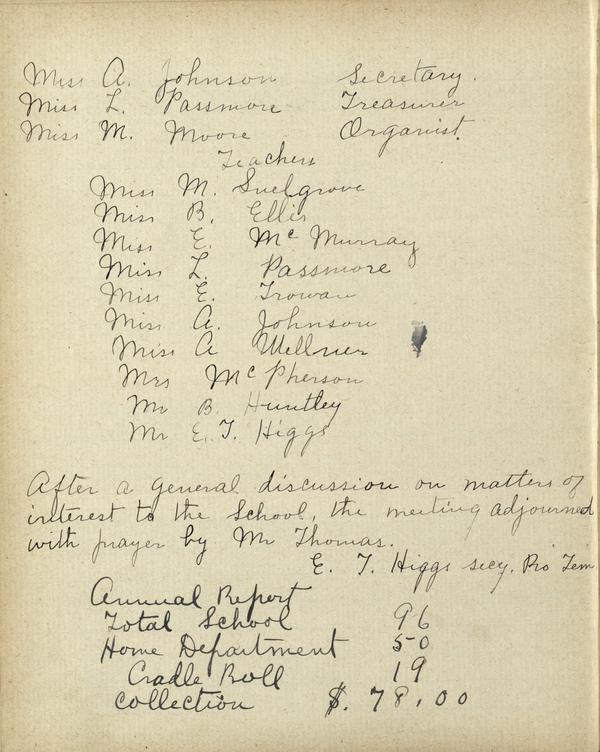 Miss A. Johnson Secretary.
Miss L. Passmore Treasurer
Miss M. Moore Organist.
Teachers
Miss M. Snelgrove
Miss B. Ellis
Miss E. McMurray
Miss L. Passmore
Miss E. Trowan
Miss A. Johnson
Miss A Wellner
Mrs McPherson
Mr B. Huntley
Mr E. T. Higgs
After a general discussion on matters of
interest to the School, the meeting adjourned
with prayer by Mr Thomas.
E. T. Higgs secy. Pro Tem
Annual Report
Total School 96
Home Department 50
Cradle Roll 19
Collection $. 78.00